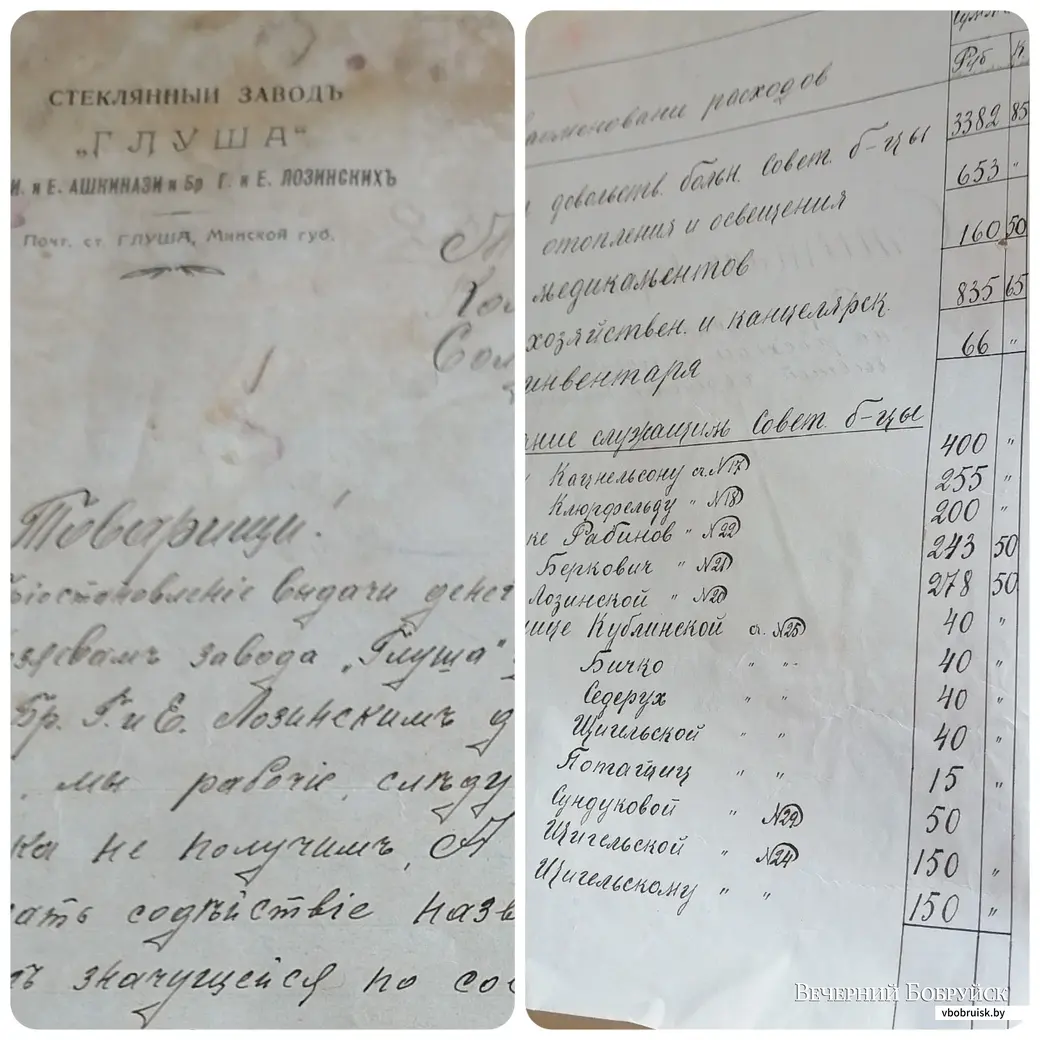 СТЕКЛЯННЫЙ ЗАВОДЪ
„ГЛУША“
И. и Е. АШКИНАЗИ и Бр Г. и Е. ЛОЗИНСКИХЪ
Почт. ст. ГЛУША, Минской губ.
Товарищи!
выдачи денег
завода „Глуша“
Бр. Г. и Е. Лозинскимъ д
мы рабочіе, слѣду
ка не получимъ, А
ать содѣйствіе назв
ъ значущейся по со
Руб К
расходов
3382 85
довольств. больн. Совет. б-цы 653 "
отопления и освещения 160 50
медикаментов 835 65
хозяйствен. и канцелярск. 66 "
инвентаря
ание служащим Совет. б-цы
400 "
Кацнельсону сч. N17 255 "
Клюрфельду " N18 200 "
ке Рабинов " N22 243 50
Беркович " N21 278 50
Лозинской " N20 40 "
ице Кублинской сч. N25 40 "
Бичко " " 40 "
Седерух " " 40 "
Щигельской " " 15 "
Поташиц " " 50
Сундуковой " N29 150 "
Щигельской " N24 150 "
Щигельскому " "
Вечерний Бобруйск
vbobruisk.by